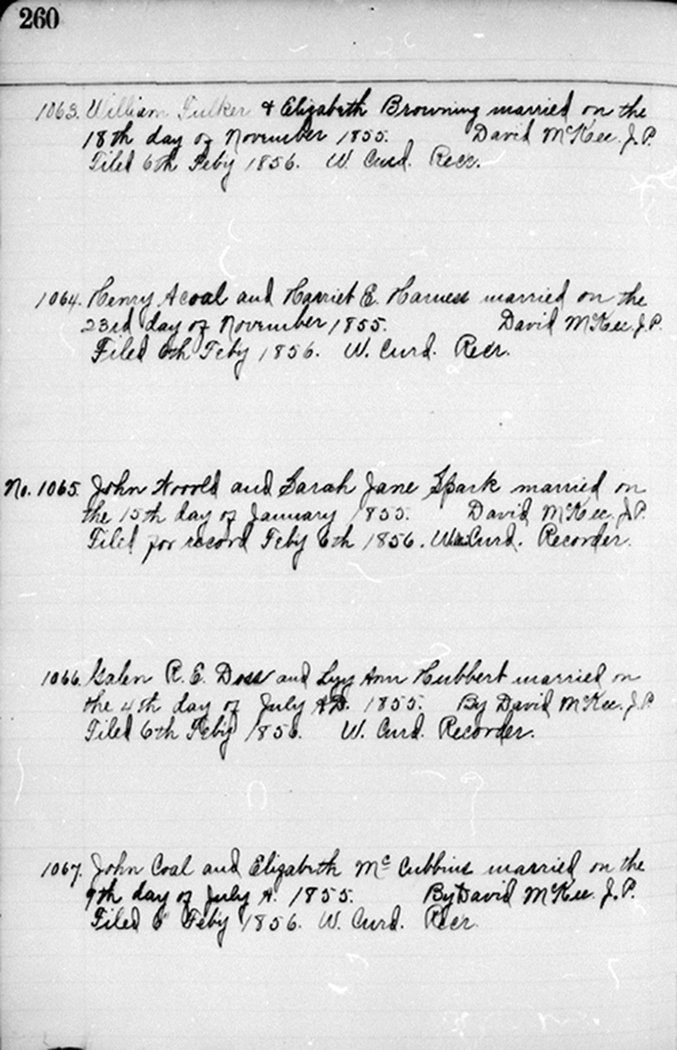 260
1063. William Fulker & Elizabeth Browning married on the
18th day of November 1855. David McKee. J.P.
Filed 6th Feby 1856. W. Curd. Recr.
1064. Henry Acoal and Harriet E. Harness married on the
23rd day of November 1855. David McKee J.P.
Filed 6th Feby 1856. W. Curd. Recr.
No. 1065. John and Sarah Jane Spark married on
the 15th day of January 1855. David McKee. J.P.
Filed for record Feby 6th 1856. Curd. Recorder.
1066. Galen R. E. Doss and Ann Hubbert married on
the 4th day of July AD. 1855. By David McKee. J.P.
Filed 6th Feby 1856. W. Curd. Recorder.
1067. John Coal and Elizabeth Mc Cubbins married on the
9th day of July A. 1855. By David McKee. J.P.
Filed 6" Feby 1856. W. Curd. Recr.